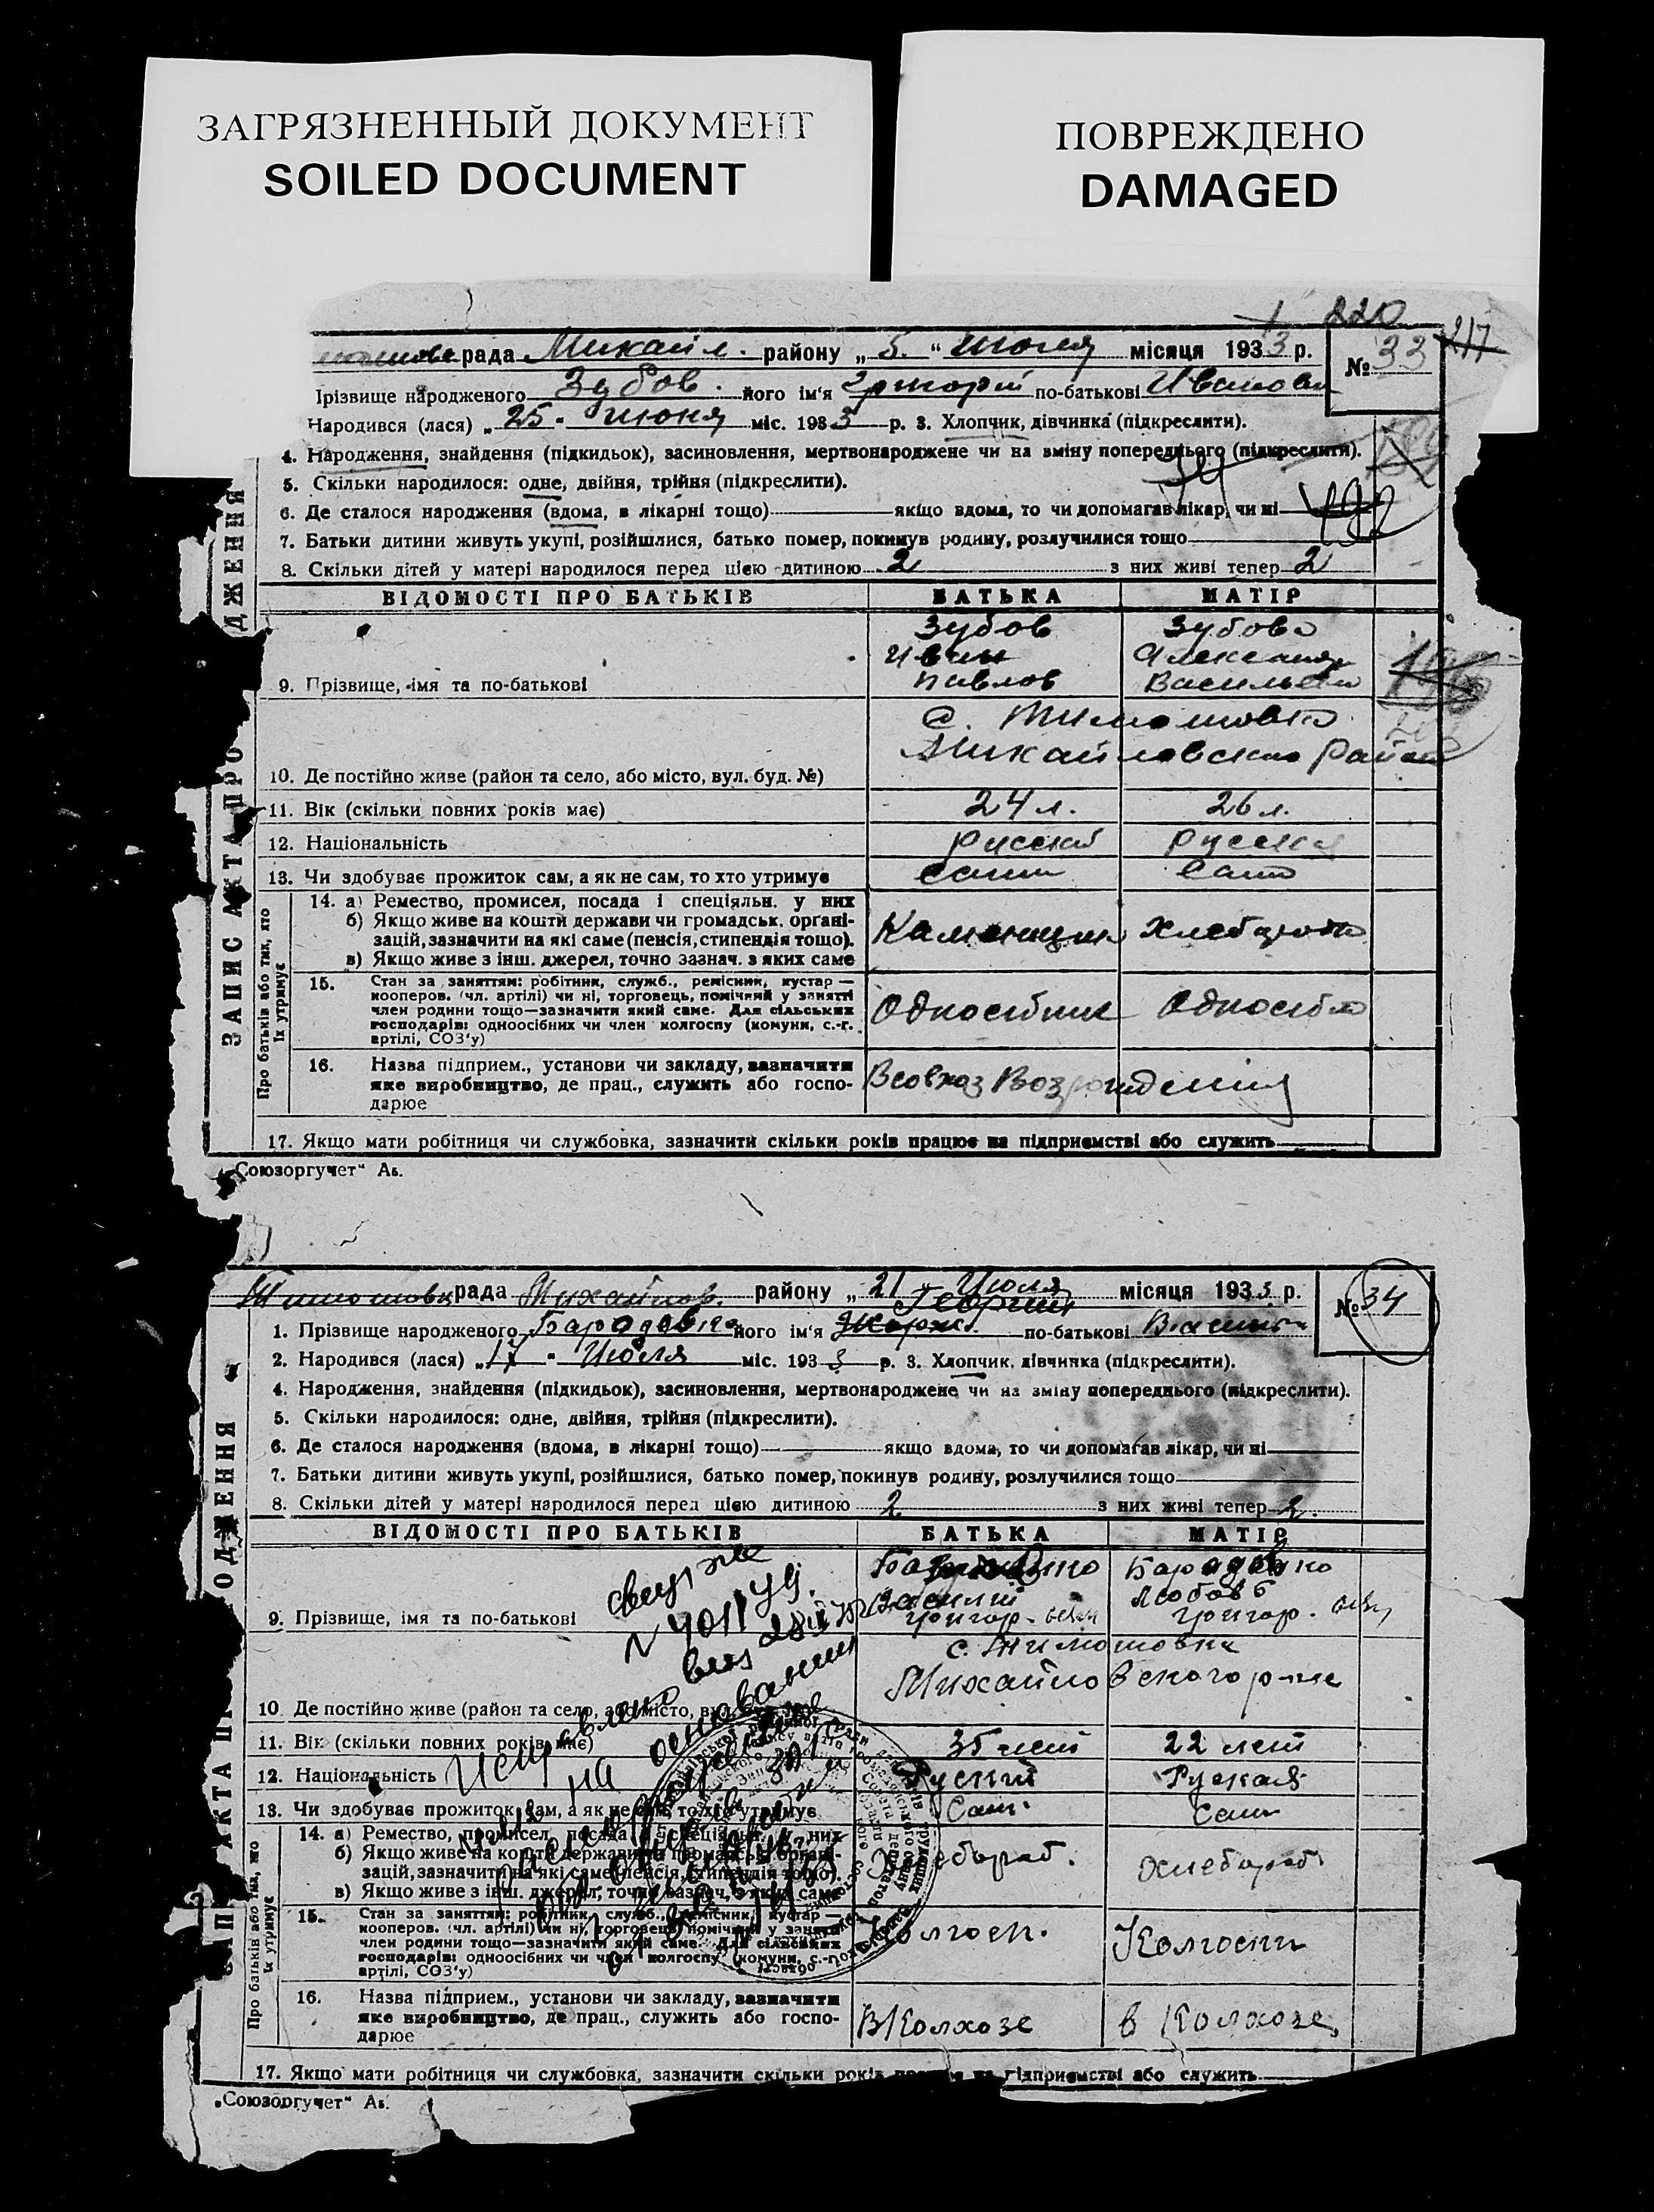 ЗАГРЯЗНЕННЫЙ ДОКУМЕНТ
SOILED DOCUMENT
ПОВРЕЖДЕНО
DAMAGED
220
217
рада Михайл. району „ 5. “ июля місяця 1933 р.
№ 33
Ірізвище народженого Зубов. його ім'я по-батькові Иванови
Народився (лася) „ 25 - июня міс. 1933 р. 3. Хлопчик, дівчинка (підкреслити).
4. Народження, знайдення (підкидьок), засиновлення, мертвонароджене чи на зміну попереднього (підкреслити).
5. Скільки народилося: одне, двійня, трійня (підкреслити).
6. Де сталося народження (вдома, в лікарні тощо) якіщо вдома, то чи допомагав лікар, чи ні
7. Батьки дитини живуть укупі, розійшлися, батько помер, покинув родину, розлучилися тощо
8. Скільки дітей у матері народилося перед цією дитиною 2 з них живі тепер 2
ВІДОМОСТІ ПРО БАТЬКІВ БАТЬКА МАТІР
Зубов Зубова
Иван Александр
9. Прізвище, імя та по-батькові Павлов Васильевн
с. Тимошовка
Михайловского Район
10. Де постійно живе (район та село, або місто, вул. буд. №)
11. Вік (скільки повних років має) 24 л. 26 л.
12. Національність русский русская
13. Чи здобуває прожиток сам, а як не сам, то хто утримує сам сама
14. а) Ремество, промисел, посада і спеціяльн. у них
б) Якщо живе на кошти держави чи громадськ. органі-
зацій, зазначити на які саме (пенсія, стипендія тощо).
в) Якщо живе з інш. джерел, точно зазнач. з яких саме
Каменщик
15. Стан за заняттям: робітник, служб., ремісник, кустар —
кооперов. (чл. артілі) чи ні, торговець, помічний у занятті
член родини тощо—зазначити який саме. Для сільських
господарів: одноосібних чи член колгоспу (комуни, с.-г.
артілі, СОЗ'у)
Одноосібник Одноосібна
16. Назва підприєм., установи чи закладу, зазначити
яке виробництво, де прац., служить або госпо-
дарює
Всовхоз Возрождения
17. Якщо мати робітниця чи службовка, зазначити скільки років працює на підприємстві або служить
„Союзоргучет“ Аб.
ЗАПИС АКТА ПРО ДЖЕННЯ
Про батьків або тих, хто
їх утримує
Тимошовк рада Михайлов. району „ 21 “ Июля місяця 1933 р.
№ 34
Георгий
1. Прізвище народженого його ім'я Жорж. по-батькові
2. Народився (лася) „ 17 - Июля міс. 1933 р. 3. Хлопчик, дівчинка (підкреслити).
4. Народження, знайдення (підкидьок), засиновлення, мертвонароджене чи на зміну попереднього (підкреслити).
5. Скільки народилося: одне, двійня, трійня (підкреслити).
6. Де сталося народження (вдома, в лікарні тощо) якщо вдома, то чи допомагав лікар, чи ні
7. Батьки дитини живуть укупі, розійшлися, батько помер, покинув родину, розлучилися тощо
8. Скільки дітей у матері народилося перед цією дитиною 2 з них живі тепер 2.
ВІДОМОСТІ ПРО БАТЬКІВ БАТЬКА МАТІР
Василий Любовь
9. Прізвище, імя та по-батькові Григор. Григор.
с. Тимошовка
Михайловского р-на
10. Де постійно живе (район та село, або місто, вул.
11. Вік (скільки повних років має) 35 лет 22 лет
12. Національність Руский Руская
13. Чи здобуває прожиток сам, а як не сам, то хто утримує Сам. сам
Исправлено
на основании
14. а) Ремество, промисел, посада і спеціяльн. у них
б) Якщо живе на кошти держави чи громадськ. органі-
зацій, зазначити на які саме (пенсія, стипендія тощо).
в) Якщо живе з інш. джерел, точно зазнач. з яких саме
Хлебораб. хлебораб
15. Стан за заняттям: робітник, служб., ремісник, кустар —
кооперов. (чл. артілі) чи ні, торговець, помічний у занятті
член родини тощо—зазначити який саме. Для сільських
господарів: одноосібних чи член колгоспу (комуни, с.-г.
артілі, СОЗ'у)
Колгосп. Колгосп
16. Назва підприєм., установи чи закладу, зазначити
яке виробництво, де прац., служить або госпо-
дарює
В Колхозе в Колхозе
17. Якщо мати робітниця чи службовка, зазначити скільки років підприємстві або служить
„Союзоргучет“ Аб.
АКТА ОДЖЕННЯ
Про батьків або тих, що
їх утримує